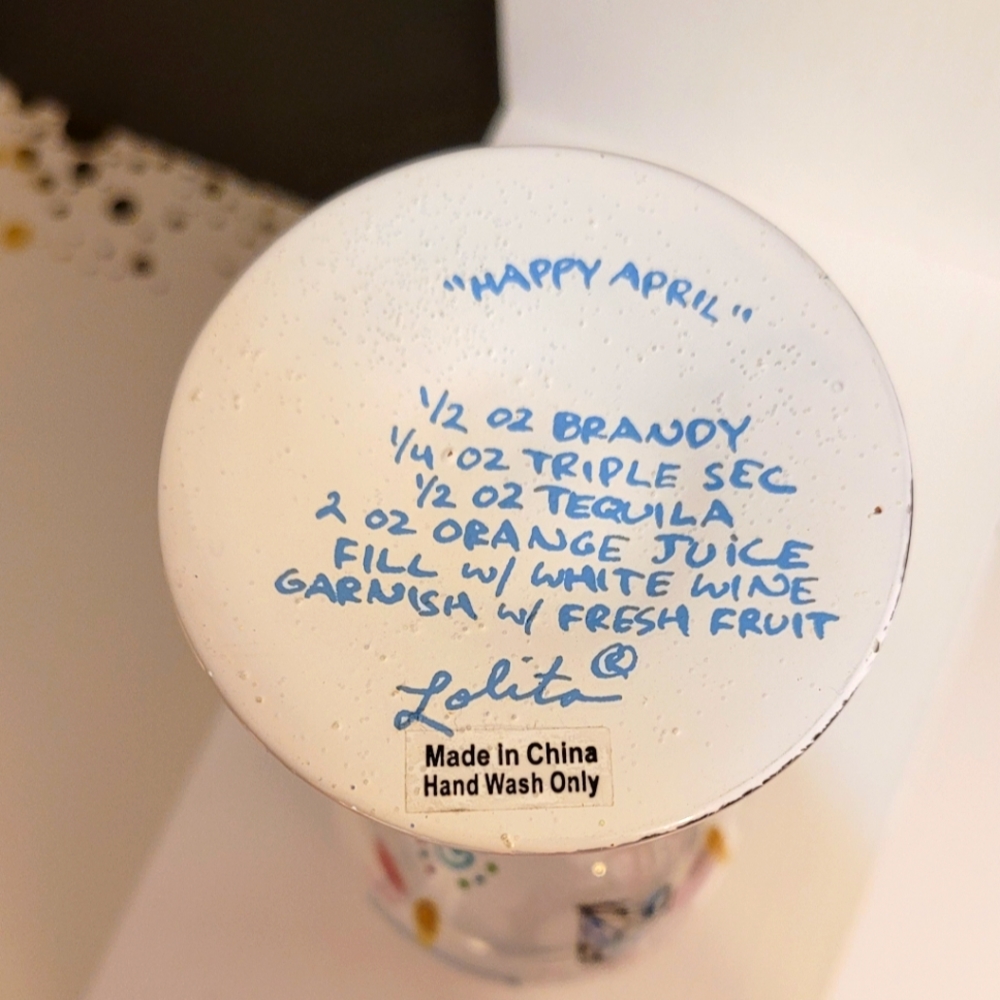 "HAPPY APRIL"
1/2 OZ BRANDY
1/4 OZ TRIPLE SEC
1/2 OZ TEQUILA
2 OZ ORANGE JUICE
FILL W/ WHITE WINE
GARNISH W/ FRESH FRUIT
Lolita®
Made in China
Hand Wash Only